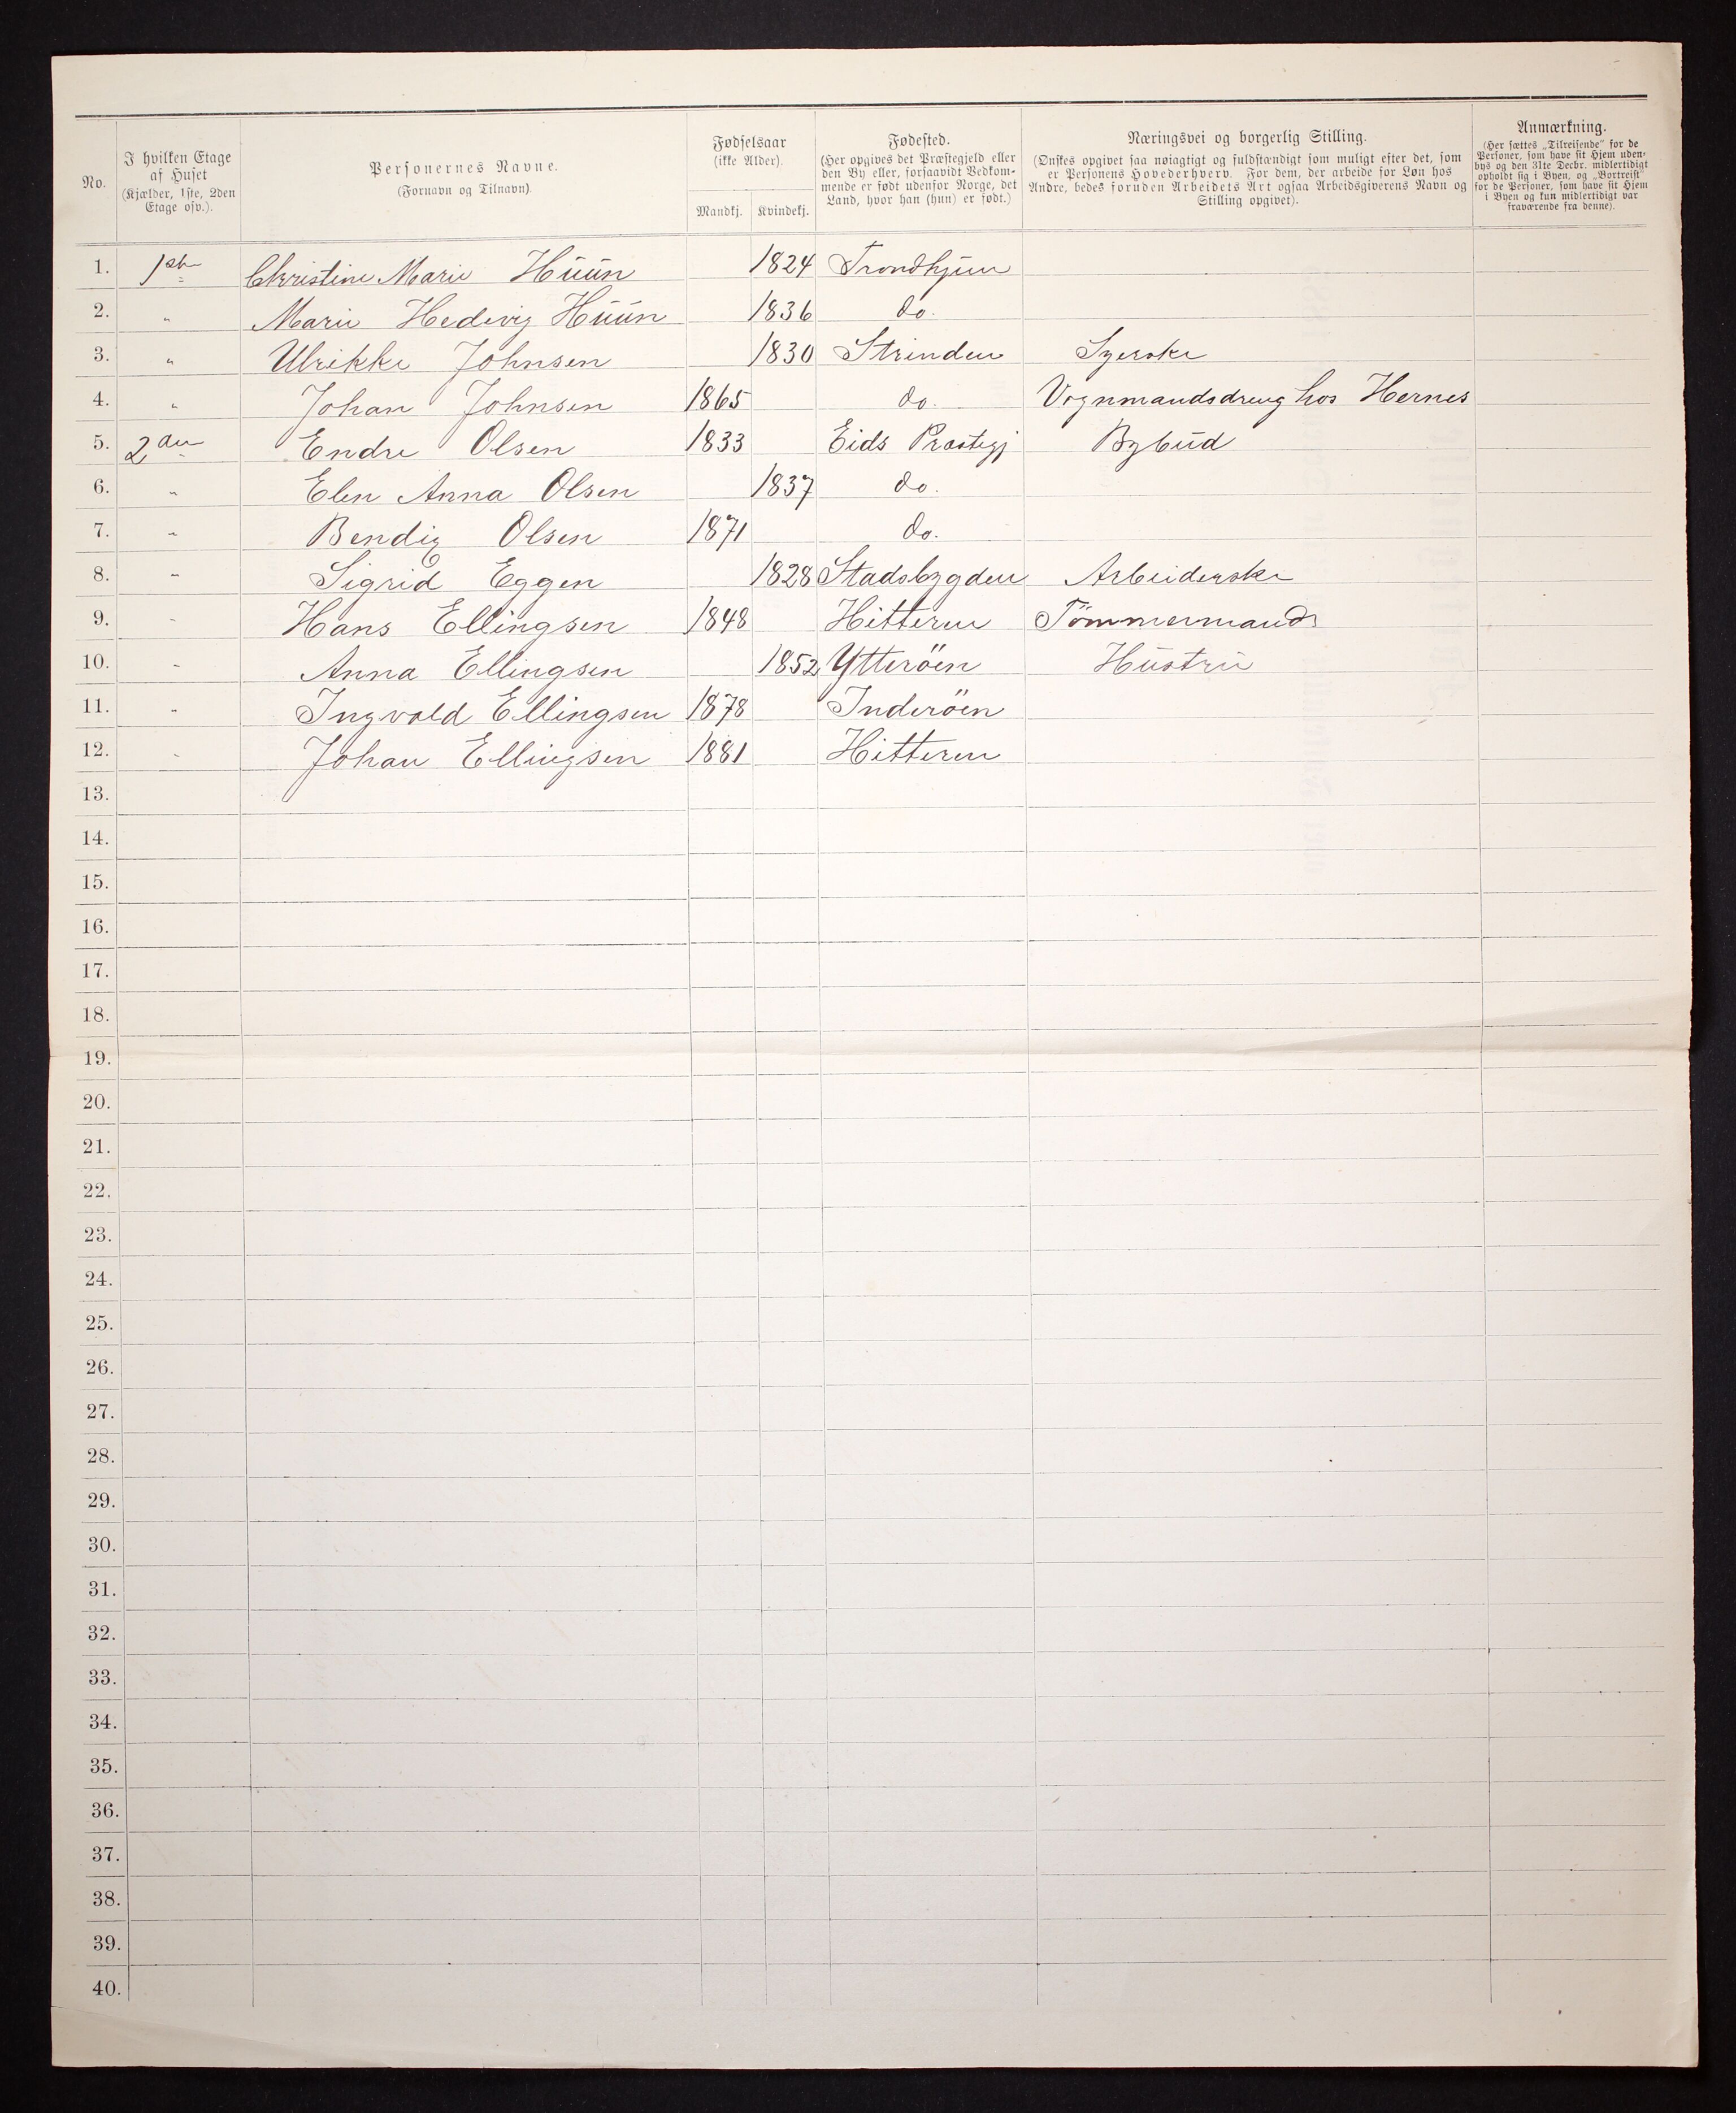 No.
I hvilken Etage af Huset (Kjælder, 1ste, 2den Etage osv.).
Personernes Navne. (Fornavn og Tilnavn).
Fødselsaar (ikke Alder).
Mandkj. Kvindekj.
Fødested. (Her opgives det Præstegjeld eller den By eller, forsaavidt Vedkommende er født udenfor Norge, det Land, hvor han (hun) er født.)
Næringsvei og borgerlig Stilling. (Ønskes opgivet saa nøiagtigt og fuldstændigt som muligt efter det, som er Personens Hovederhverv. For dem, der arbeide for Løn hos Andre, bedes foruden Arbeidets Art ogsaa Arbeidsgiverens Navn og Stilling opgivet).
Anmærkning. (Her sættes „Tilreisende“ for de Personer, som have sit Hjem udenbys og den 31te Decbr. midlertidigt opholdt sig i Byen, og „Bortreist“ for de Personer, som have sit Hjem i Byen og kun midlertidigt var fraværende fra denne).
1. 1ste Christine Marie Huun 1824 Trondhjem
2. " Marie Hedevig Huun 1836 do.
3. " Ulrikke Johnsen 1830 Strinden Syerske
4. " Johan Johnsen 1865 do. Vognmandsdreng hos Hernes
5. 2den Endre Olsen 1833 Eids Præstegj Bybud
6. " Elen Anna Olsen 1837 do.
7. " Bendig Olsen 1871 do.
8. " Sigrid Eggen 1828 Stadsbygden Arbeiderske
9. " Hans Ellingsen 1848 Hitteren Tömmermand
10. " Anna Ellingsen 1852 Ytteröen Hustru
11. " Ingvald Ellingsen 1878 Inderöen
12. " Johan Ellingsen 1881 Hitteren
13.
14.
15.
16.
17.
18.
19.
20.
21.
22.
23.
24.
25.
26.
27.
28.
29.
30.
31.
32.
33.
34.
35.
36.
37.
38.
39.
40.